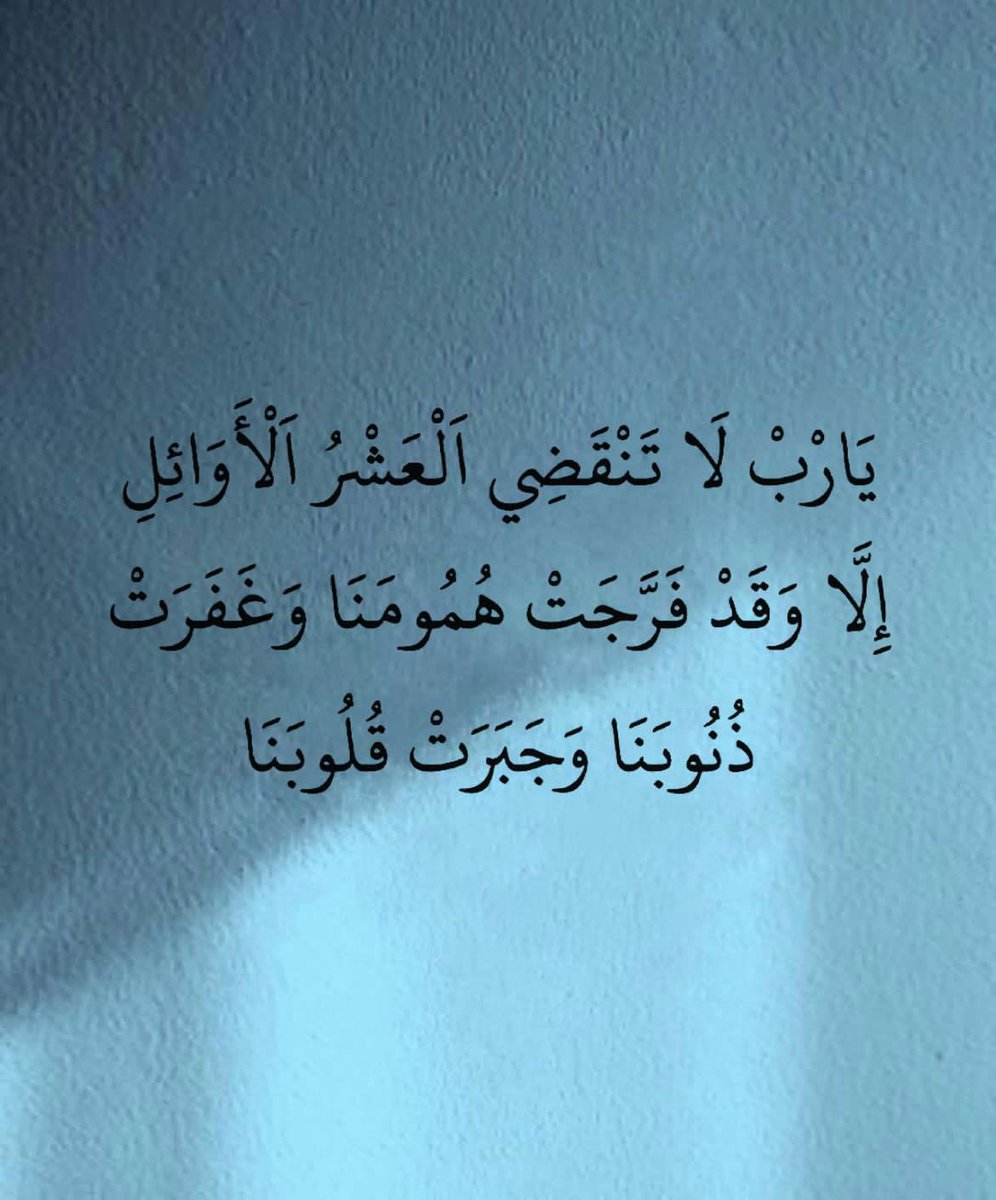 يَارْبْ لَا تَنْقَضِي اَلْعَشْرُ اَلْأَوَائِلِ
إِلَّا وَقَدْ فَرَّجَتْ هُمُومَنَا وَغَفَرَتْ
ذُنُوبَنَا وَجَبَرَتْ قُلُوبَنَا